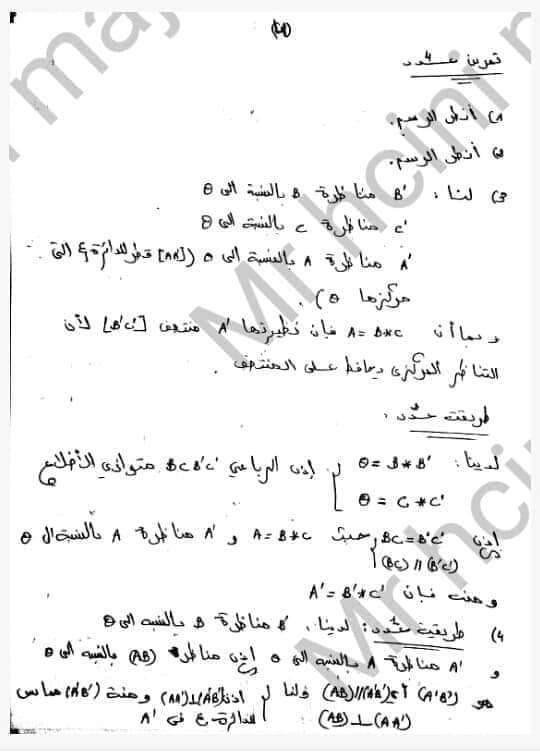 تمرين عدد 4
1) أنظر الرسم.
2) أنظر الرسم.
3) لنا: B' مناظرة B بالنسبة الى θ
C' مناظرة C بالنسبة الى θ
A' مناظرة A بالنسبة الى θ ([AA'] قطر للدائرة ξ التي
مركزها θ).
و بما أن A = B*C فإن نظيرتها A' منتصف [B'C'] لأن
التناظر المركزي يحافظ على المنتصف.
طريقة عدد :
لدينا: θ = B*B'
θ = C*C' إذن الرباعي BCB'C' متوازي الأضلاع
إذن BC = B'C' حيث A = B*C و A' مناظرة A بالنسبة ال θ
(BC) // (B'C')
ومنه فإن A' = B'*C'
4) طريقة عدد: لدينا. B' مناظرة B بالنسبة الى θ
و A' مناظرة A بالنسبة الى θ إذن مناظر (AB) بالنسبة الى θ
هو (A'B') أي (AB)//(A'B') ولنا اذن (AA')⊥(A'B') ومنه (A'B') مماس
(AB)⊥(AA') للدائرة ξ في A'
Mr hcini
Mr hcini